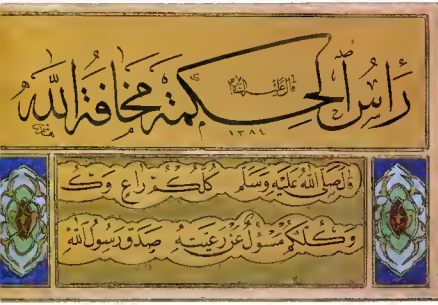 رَأْسُ الْحِكْمَةِ مَخَافَةُ اللَّهِ
قال عليه السلام
١٣٨٤
قَالَ صَلَّى اللَّهُ عَلَيْهِ وَسَلَّمَ كُلُّكُمْ رَاعٍ وَكُ
وَكُلُّكُمْ مَسْئُولٌ عَنْ رَعِيَّتِهِ صَدَقَ رَسُولُ اللَّهِ